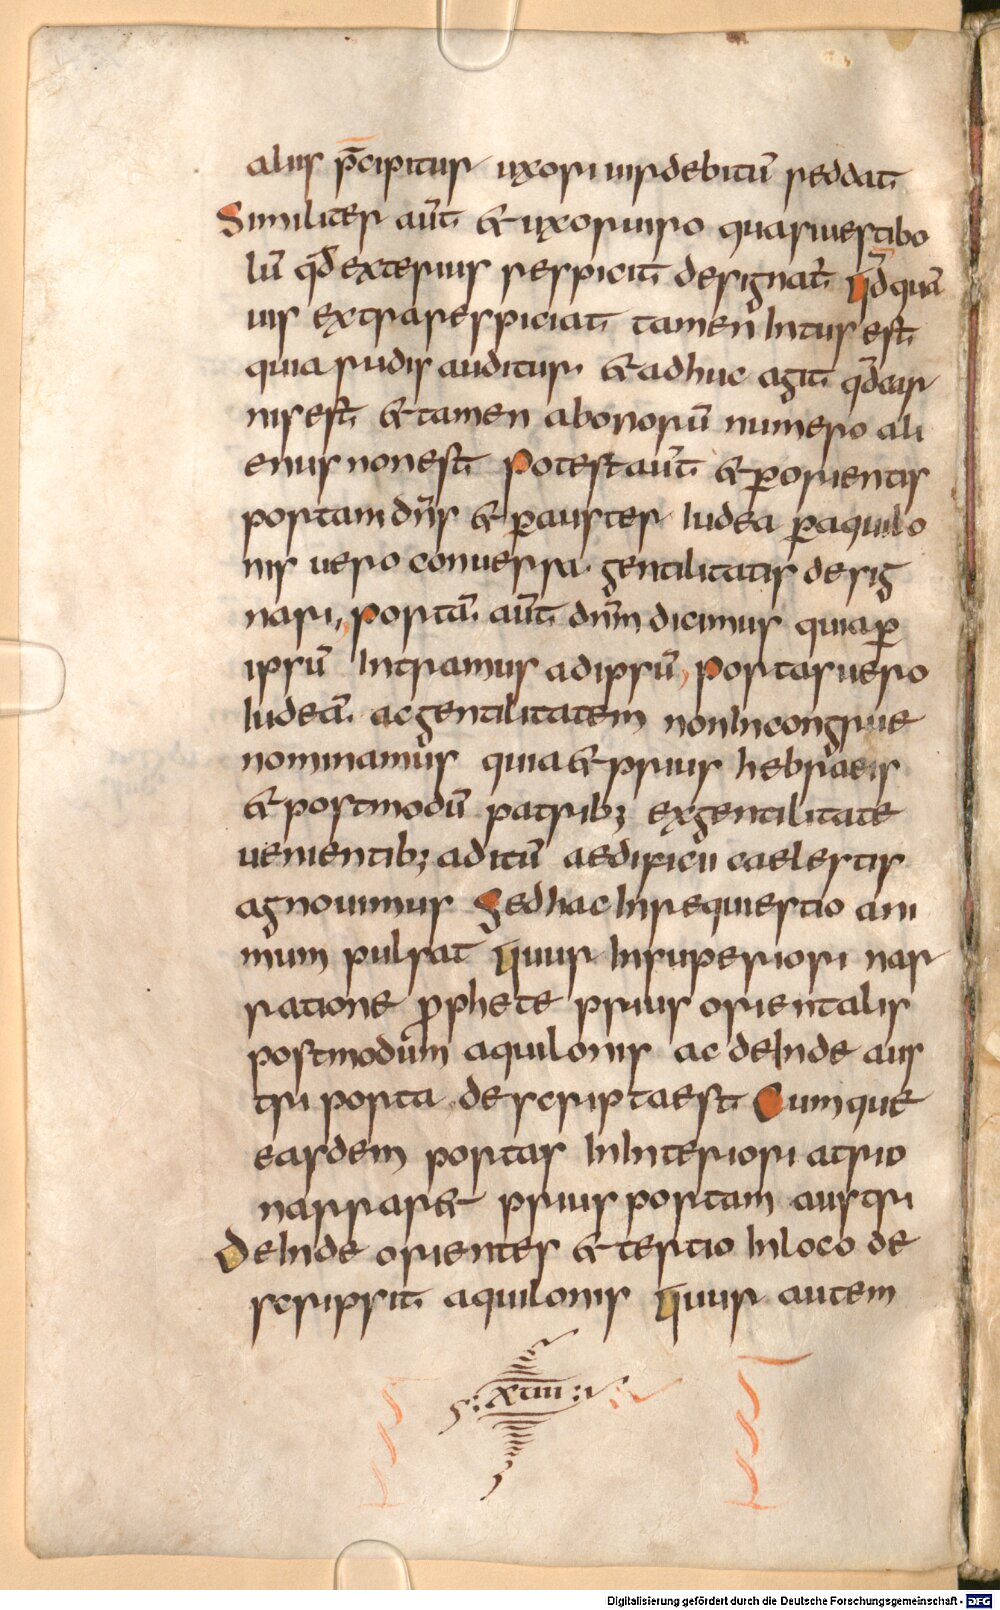 alius p̄cipitur uxori uir debitū reddat.
Similiter aūt. & uxor uiro quasi uestibo
lū qd̄ exterius respicit. designat̄. qd̄ quā
uis extra respiciat. tamen intus est.
quia rudis auditus. & adhuc agit. qd̄ car
nis est. & tamen ab horū numero ali
enus non est. Potest aūt. & ꝑ orientis
portam dn̄s & ꝑ auster iudea ꝑ aquilo
nis uero conuersa gentilitatis desig
nari, Portā. aūt. dn̄m dicimus quia ꝑ
ipsū intramus ad ipsū, Portas uero
iudeā. ac gentilitatem non incongrue
nominamus quia & prius hebraeis
& postmodū patribꝫ ex gentilitate
uenientibꝫ aditū aedificii caelestis
agnouimus Sed hac in re questio ani
mum pulsat qurur in superiori nar
ratione ꝓphete prius orientalis
postmodum aquilonis ac deinde aus
tri porta descripta est. Cumque
easdem portas in interiori atrio
narrar& prius portam austri
Deinde orientes & tertio in loco de
scripsit. aquilonis qurur autem
:xiiii: